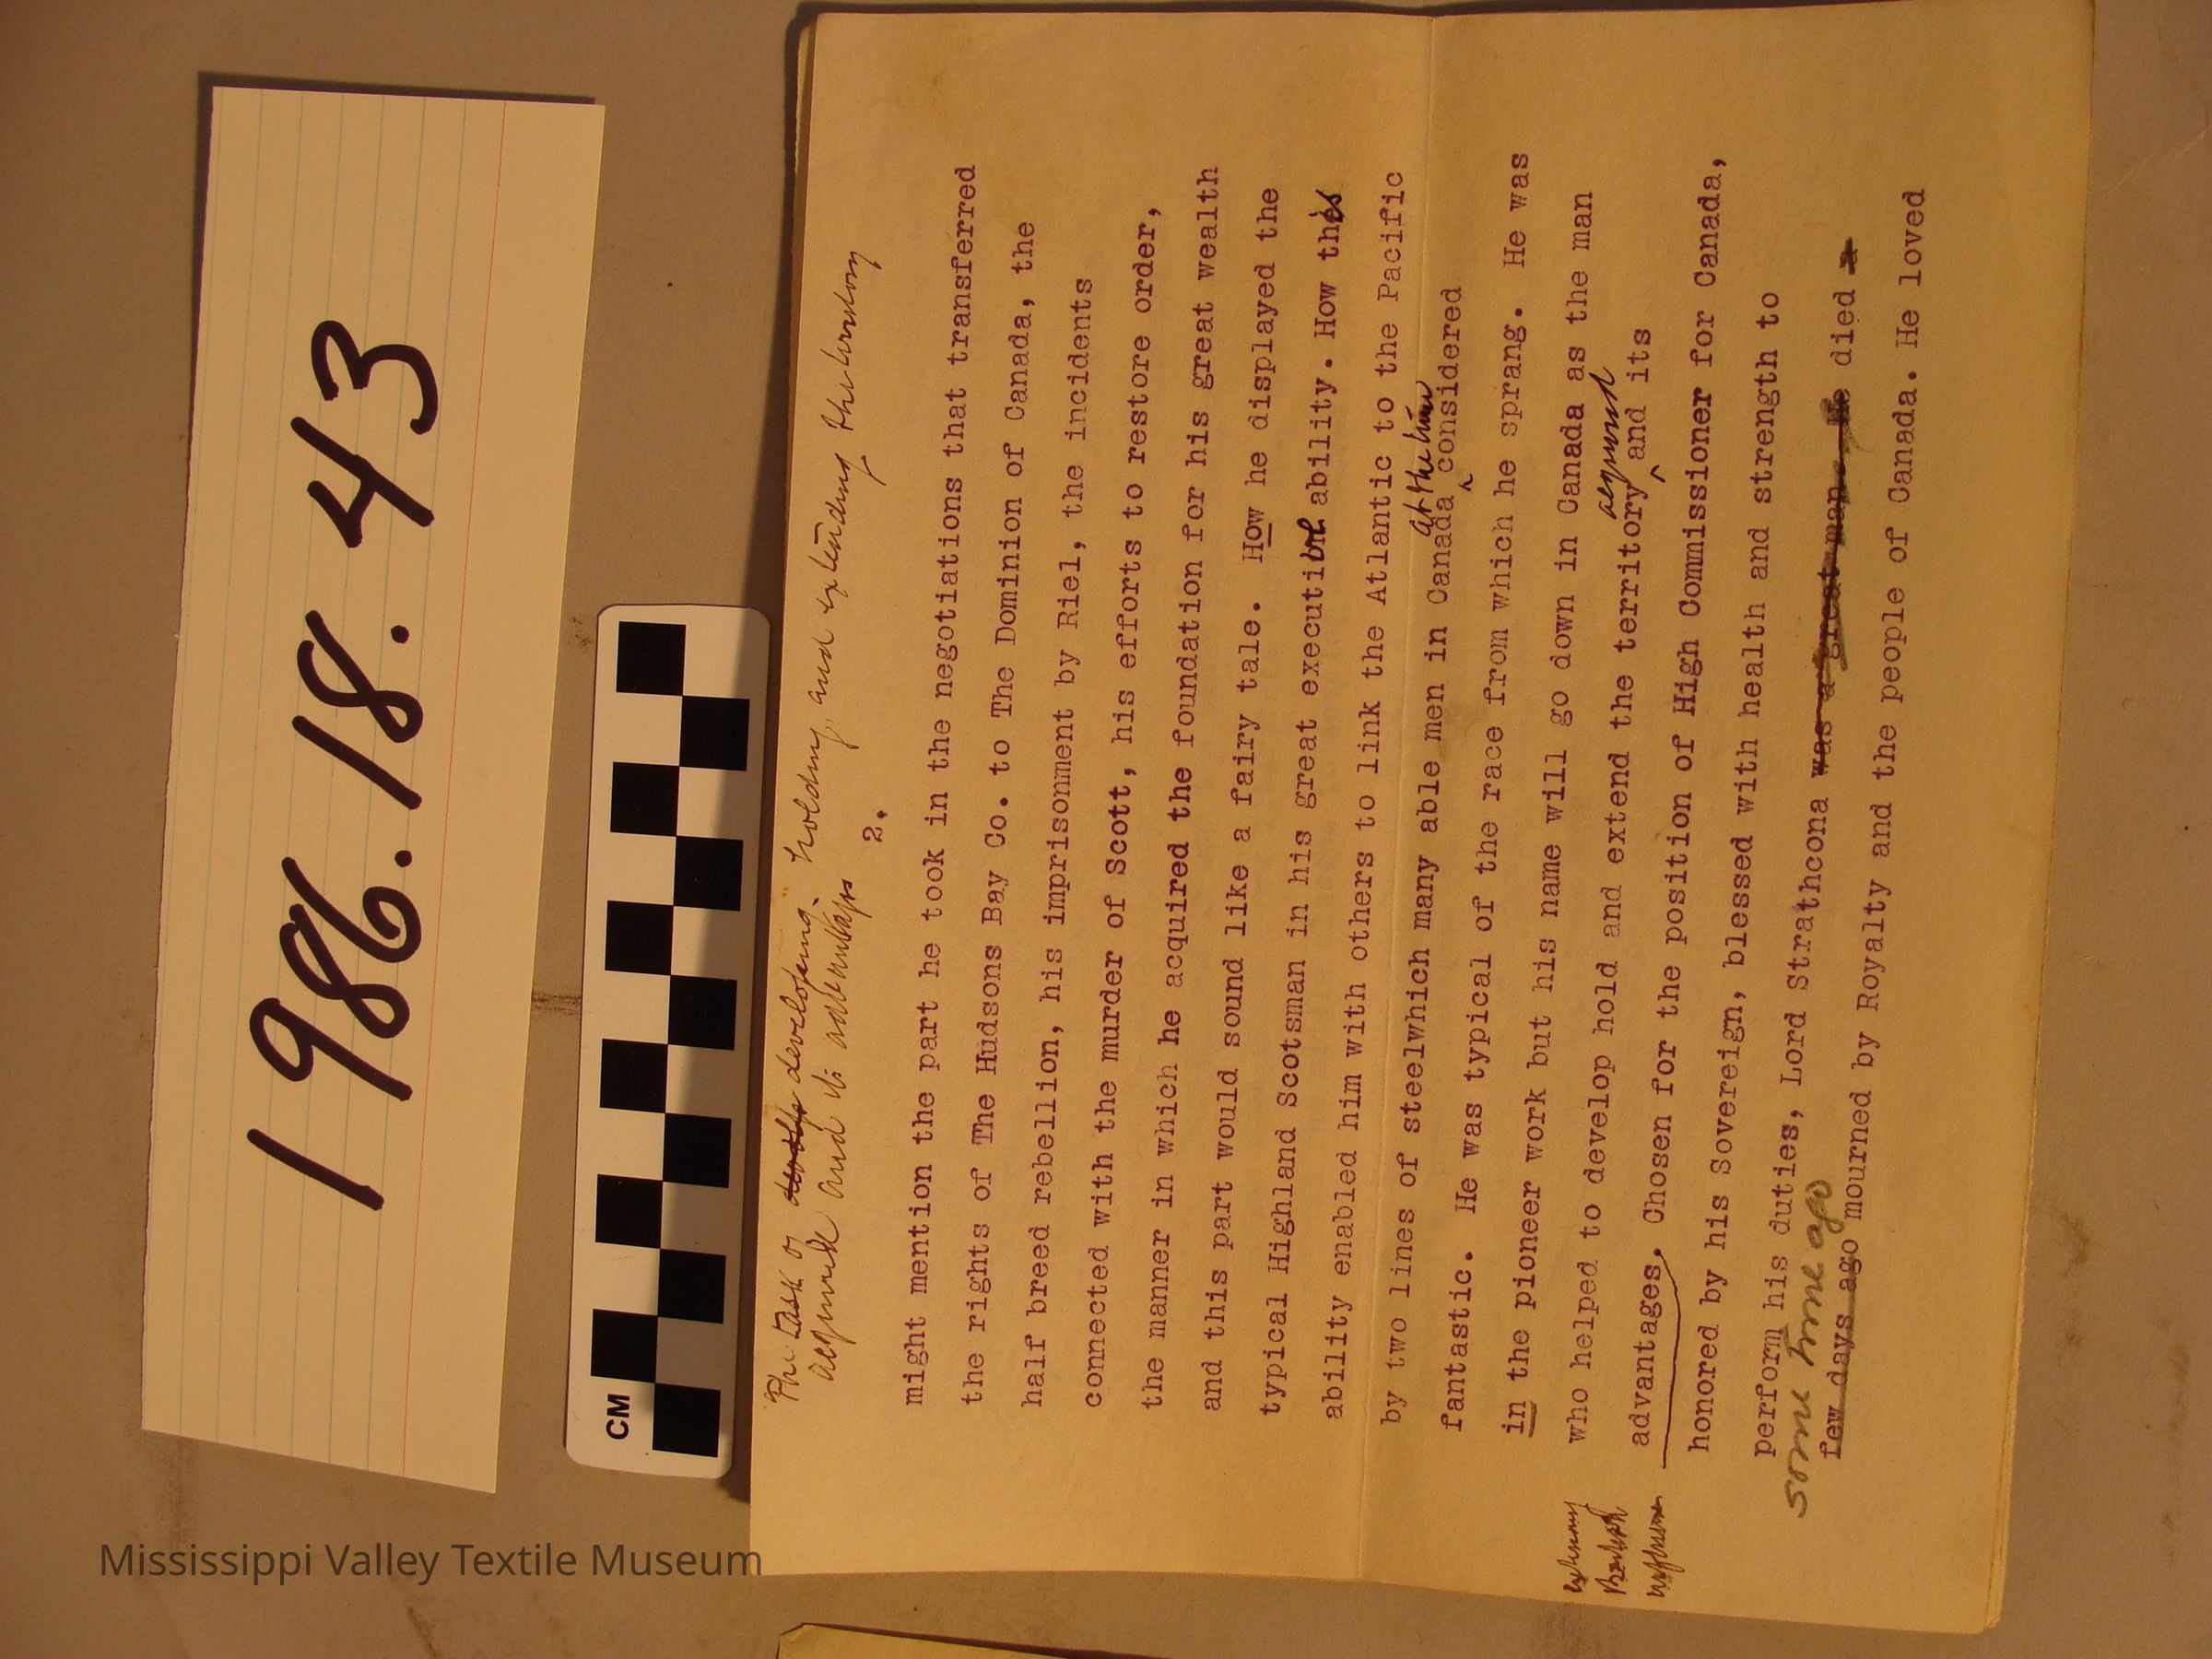 1986.18.43
CM
The task of develop developing, holding, and extending the territory
acquired and its advantages
2.
might mention the part he took in the negotiations that transferred
the rights of The Hudsons Bay Co. to The Dominion of Canada, the
half breed rebellion, his imprisonment by Riel, the incidents
connected with the murder of Scott, his efforts to restore order,
the manner in which he acquired the foundation for his great wealth
and this part would sound like a fairy tale. How he displayed the
typical Highland Scotsman in his great executive ability. How this
ability enabled him with others to link the Atlantic to the Pacific
at the time
by two lines of steelwhich many able men in Canada considered
fantastic. He was typical of the race from which he sprang. He was
in the pioneer work but his name will go down in Canada as the man
acquired
who helped to develop hold and extend the territory and its
advantages. Chosen for the position of High Commissioner for Canada,
extending
British
influence
honored by his Sovereign, blessed with health and strength to
perform his duties, Lord Strathcona was a great man. He died a
some time ago
few days ago mourned by Royalty and the people of Canada. He loved
Mississippi Valley Textile Museum